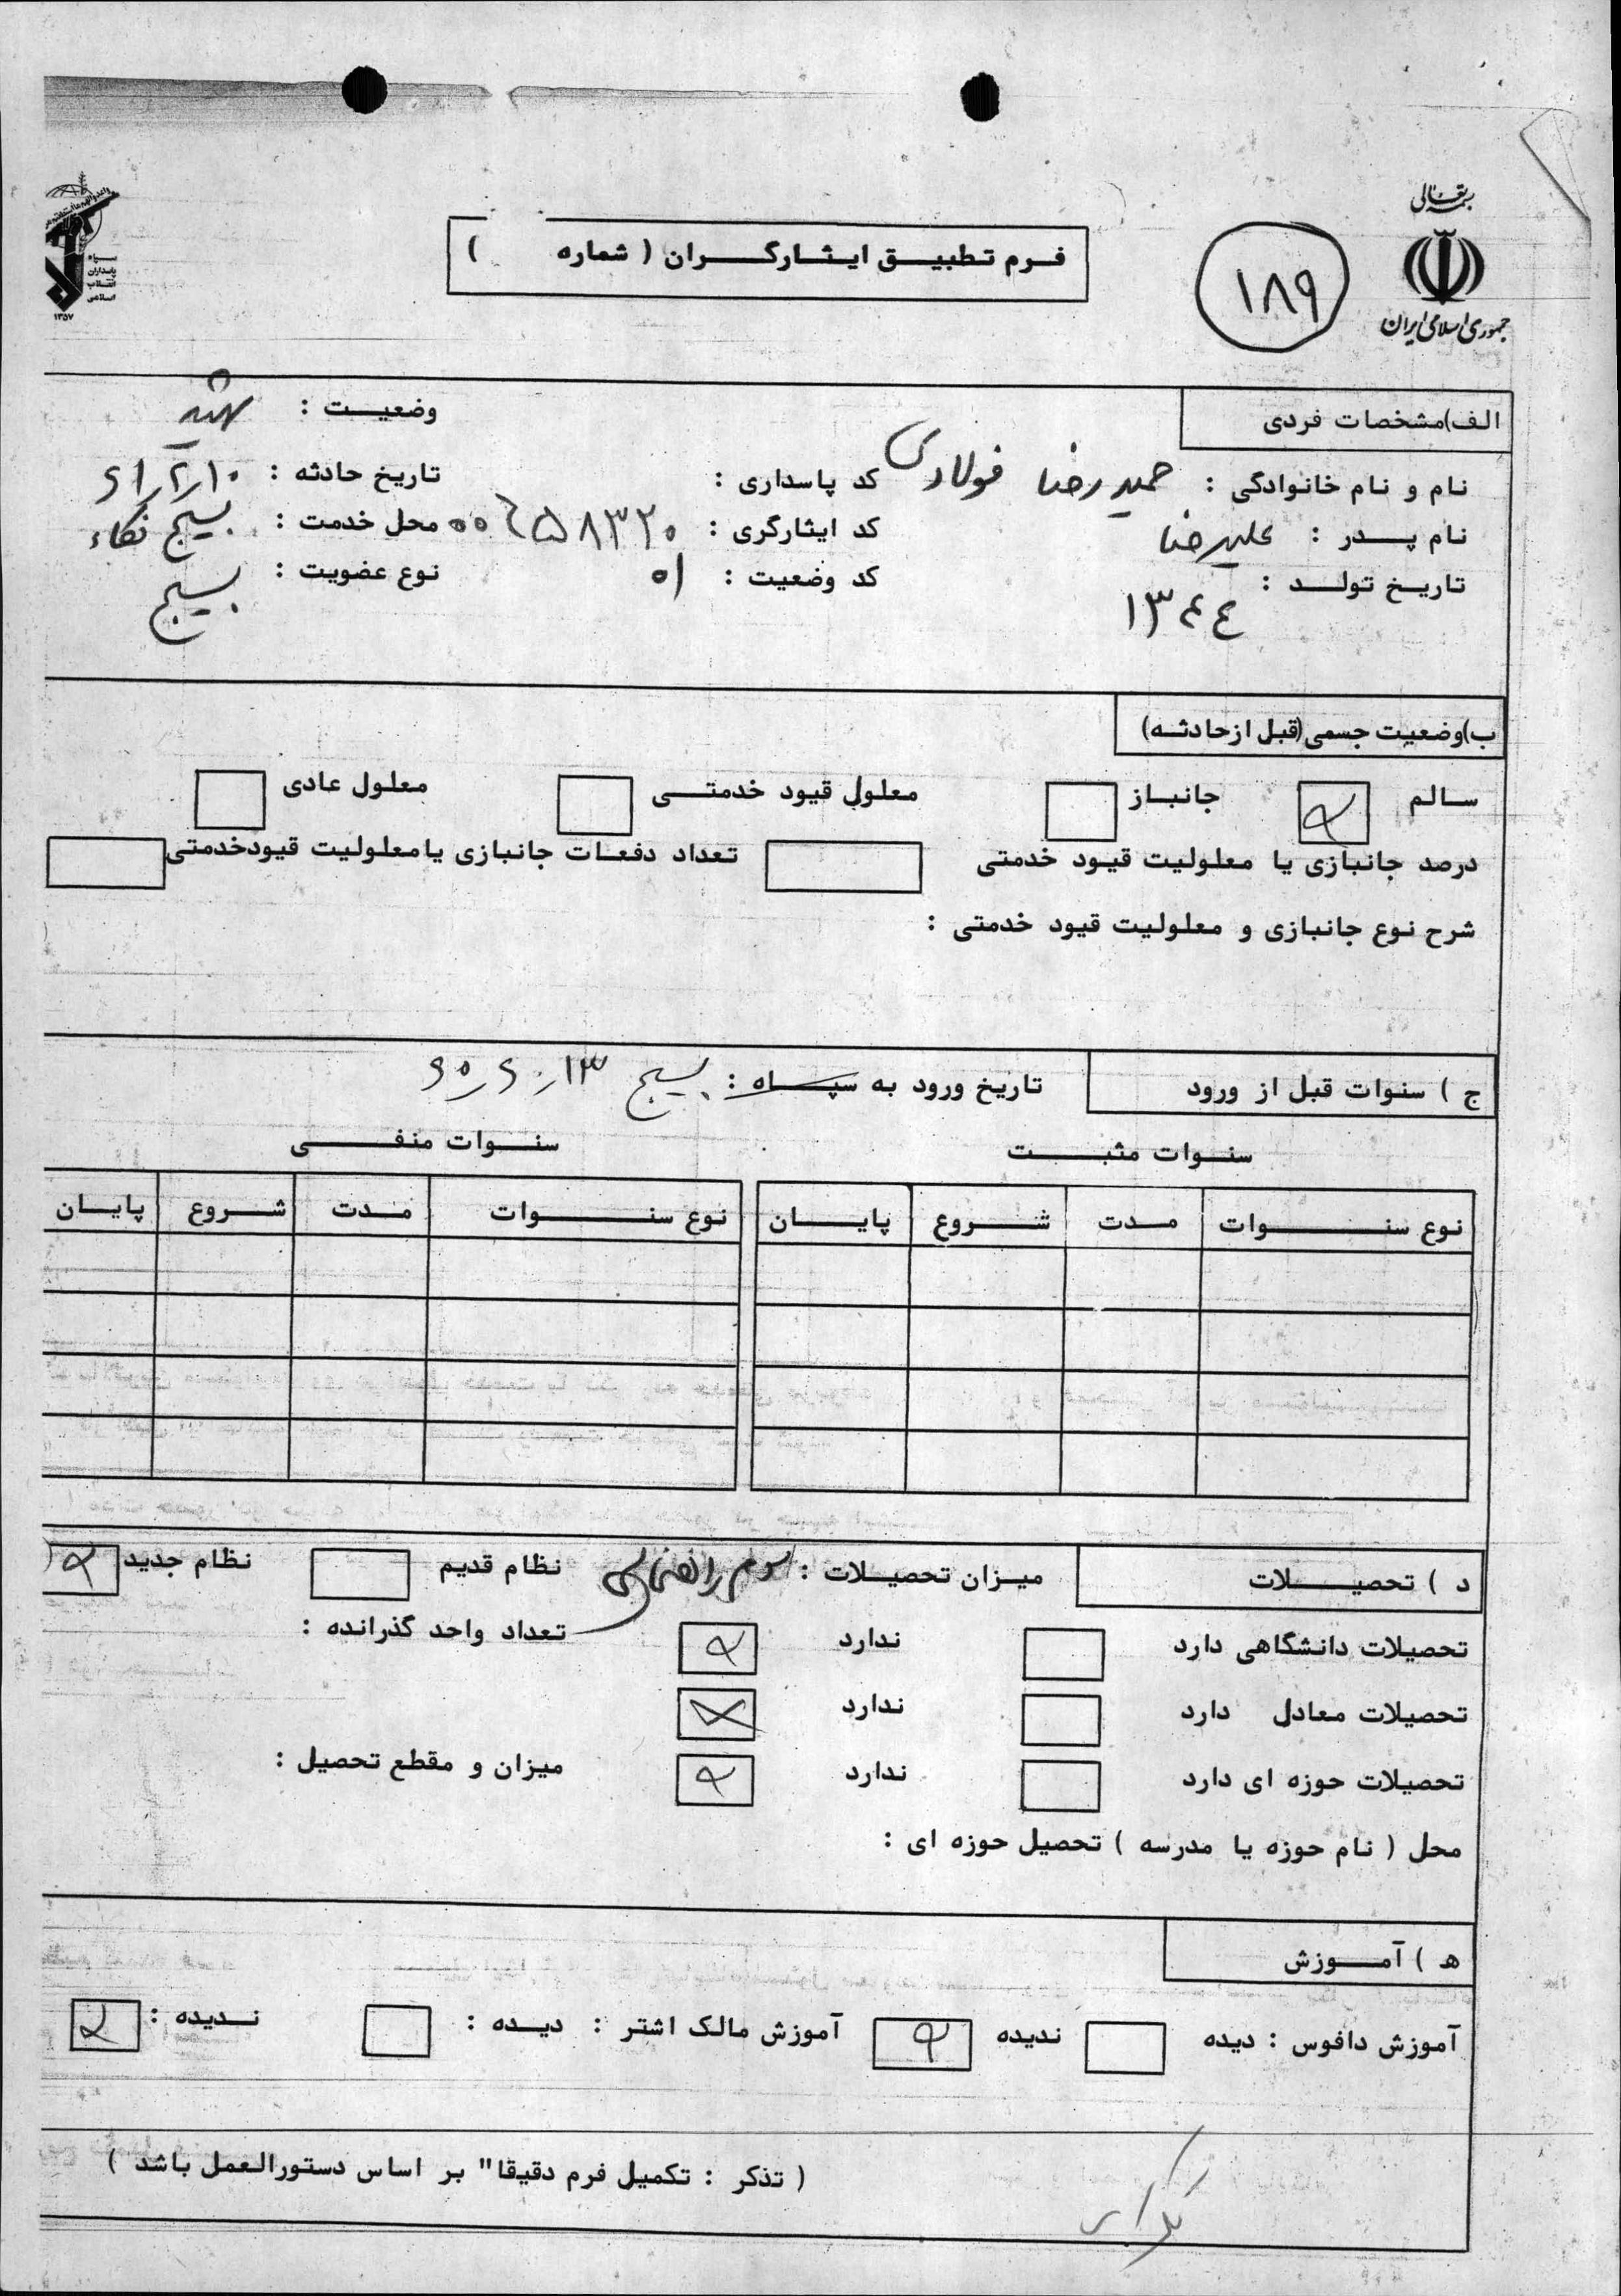 بسمه تعالی
جمهوری اسلامی ایران
۱۸۹
فرم تطبیق ایثارگران ( شماره )
سپاه
پاسداران
انقلاب
اسلامی
۱۳۵۷
الف)مشخصات فردی
وضعیت : شهید
نام و نام خانوادگی : حمیدرضا فولادی کد پاسداری : تاریخ حادثه :
نام پدر : علیرضا کد ایثارگری : محل خدمت : بسیج نکاء
تاریخ تولد : ۱۳۴۴ کد وضعیت : ۰۱ نوع عضویت : بسیج
ب)وضعیت جسمی(قبل ازحادثه)
سالم جانباز معلول قیود خدمتی معلول عادی
درصد جانبازی یا معلولیت قیود خدمتی تعداد دفعات جانبازی یامعلولیت قیودخدمتی
شرح نوع جانبازی و معلولیت قیود خدمتی :
ج ) سنوات قبل از ورود تاریخ ورود به سپاه : بسیج
سنوات مثبت سنوات منفی
نوع سنوات مدت شروع پایان نوع سنوات مدت شروع پایان
د ) تحصیلات میزان تحصیلات : سوم راهنمایی نظام قدیم نظام جدید
تحصیلات دانشگاهی دارد ندارد تعداد واحد گذرانده :
تحصیلات معادل دارد ندارد
تحصیلات حوزه ای دارد ندارد میزان و مقطع تحصیل :
محل ( نام حوزه یا مدرسه ) تحصیل حوزه ای :
ه ) آموزش
آموزش دافوس : دیده ندیده آموزش مالک اشتر : دیده : ندیده :
( تذکر : تکمیل فرم دقیقا" بر اساس دستورالعمل باشد )